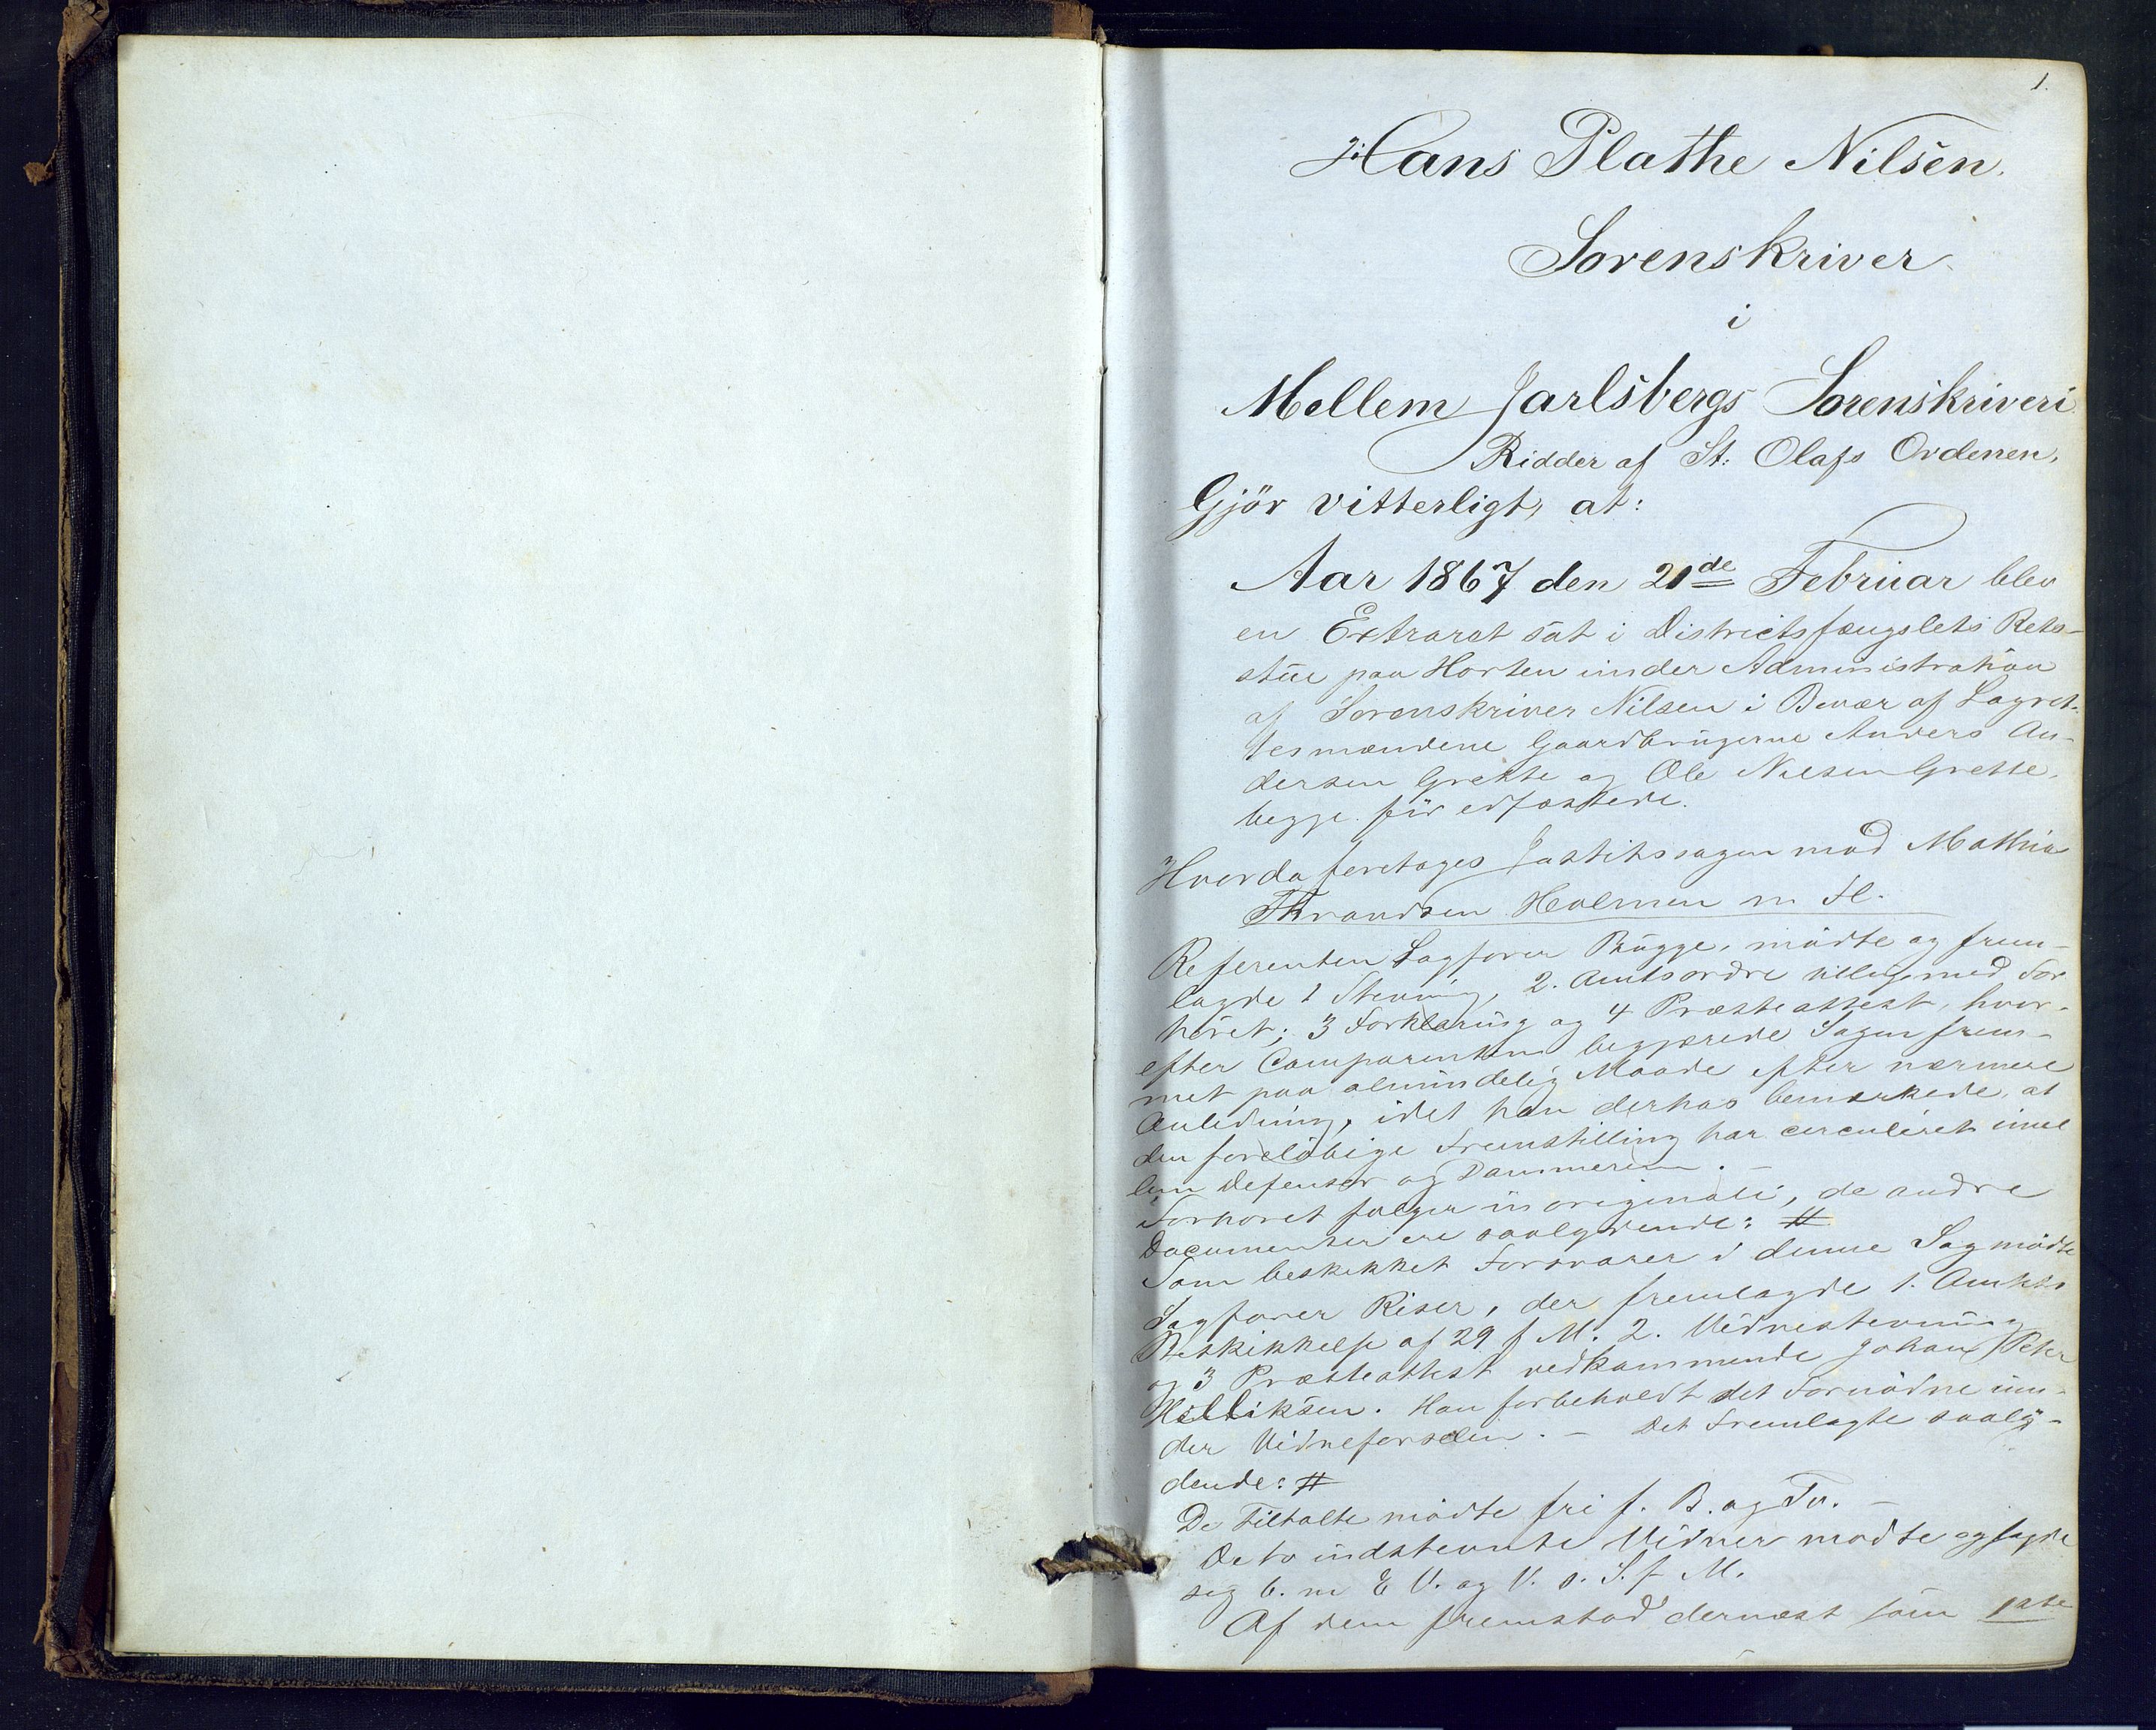 1.
Hans Plathe Nilsen.
Sorenskriver
i
Mellem Jarlsbergs Sorenskriveri
Ridder af St: Olafs Ordenen,
Gjör vitterligt, at:
Aar 1867 den 21de Februar blev
en Extraret sat i Districtsfængslets Rets-
stue paa Horten under Administration
af Sorenskriver Nilsen i Bevær af Lagret-
tesmændene Gaardbrugerne Anders An-
dersen Grette og Ole Nilsen Grette,
begge för edfæstede.
Hvorda foretages Justitssagen mod Mathia
Thrandsen Holmen m Fl.
Referenten Sagförer Bugge, mödte og frem-
lagde 1 Stevning, 2. Amtsordre tilligemed For
höret; 3 Forklaring og 4 Præsteattest, hvor-
efter Comparenten begjærede Sagen frem-
met paa almindelig Maade efter nærmere
Anledning, idet han derhos bemærkede, at
den foreløbige Fremstilling har circuleret imel
lem Defensor og Dommeren. -
Forhöret fölger in originali, de andre
Documenter ere saalydende: #
Som beskikket Forsvarer i denne Sag mödte
Sagförer Riser, der fremlagde 1. Amtets
Beskikkelse af 29 f M. 2. Vidnestevning
og 3 Præsteattest vedkommende Johan Peter
Kelliksen. Han forbeholdt det Fornødne un-
der Vidneförselen. - Det Fremlagte saaly-
dende: #
De Tiltalte mödte fri f. B. og Tv. -
De to indstevnte Vidner mödte og sagde
sig b. m E V. og V. o. S. f M.
Af dem fremstod dernæst som 1ste